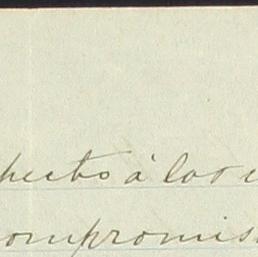 pecto á los
compromis